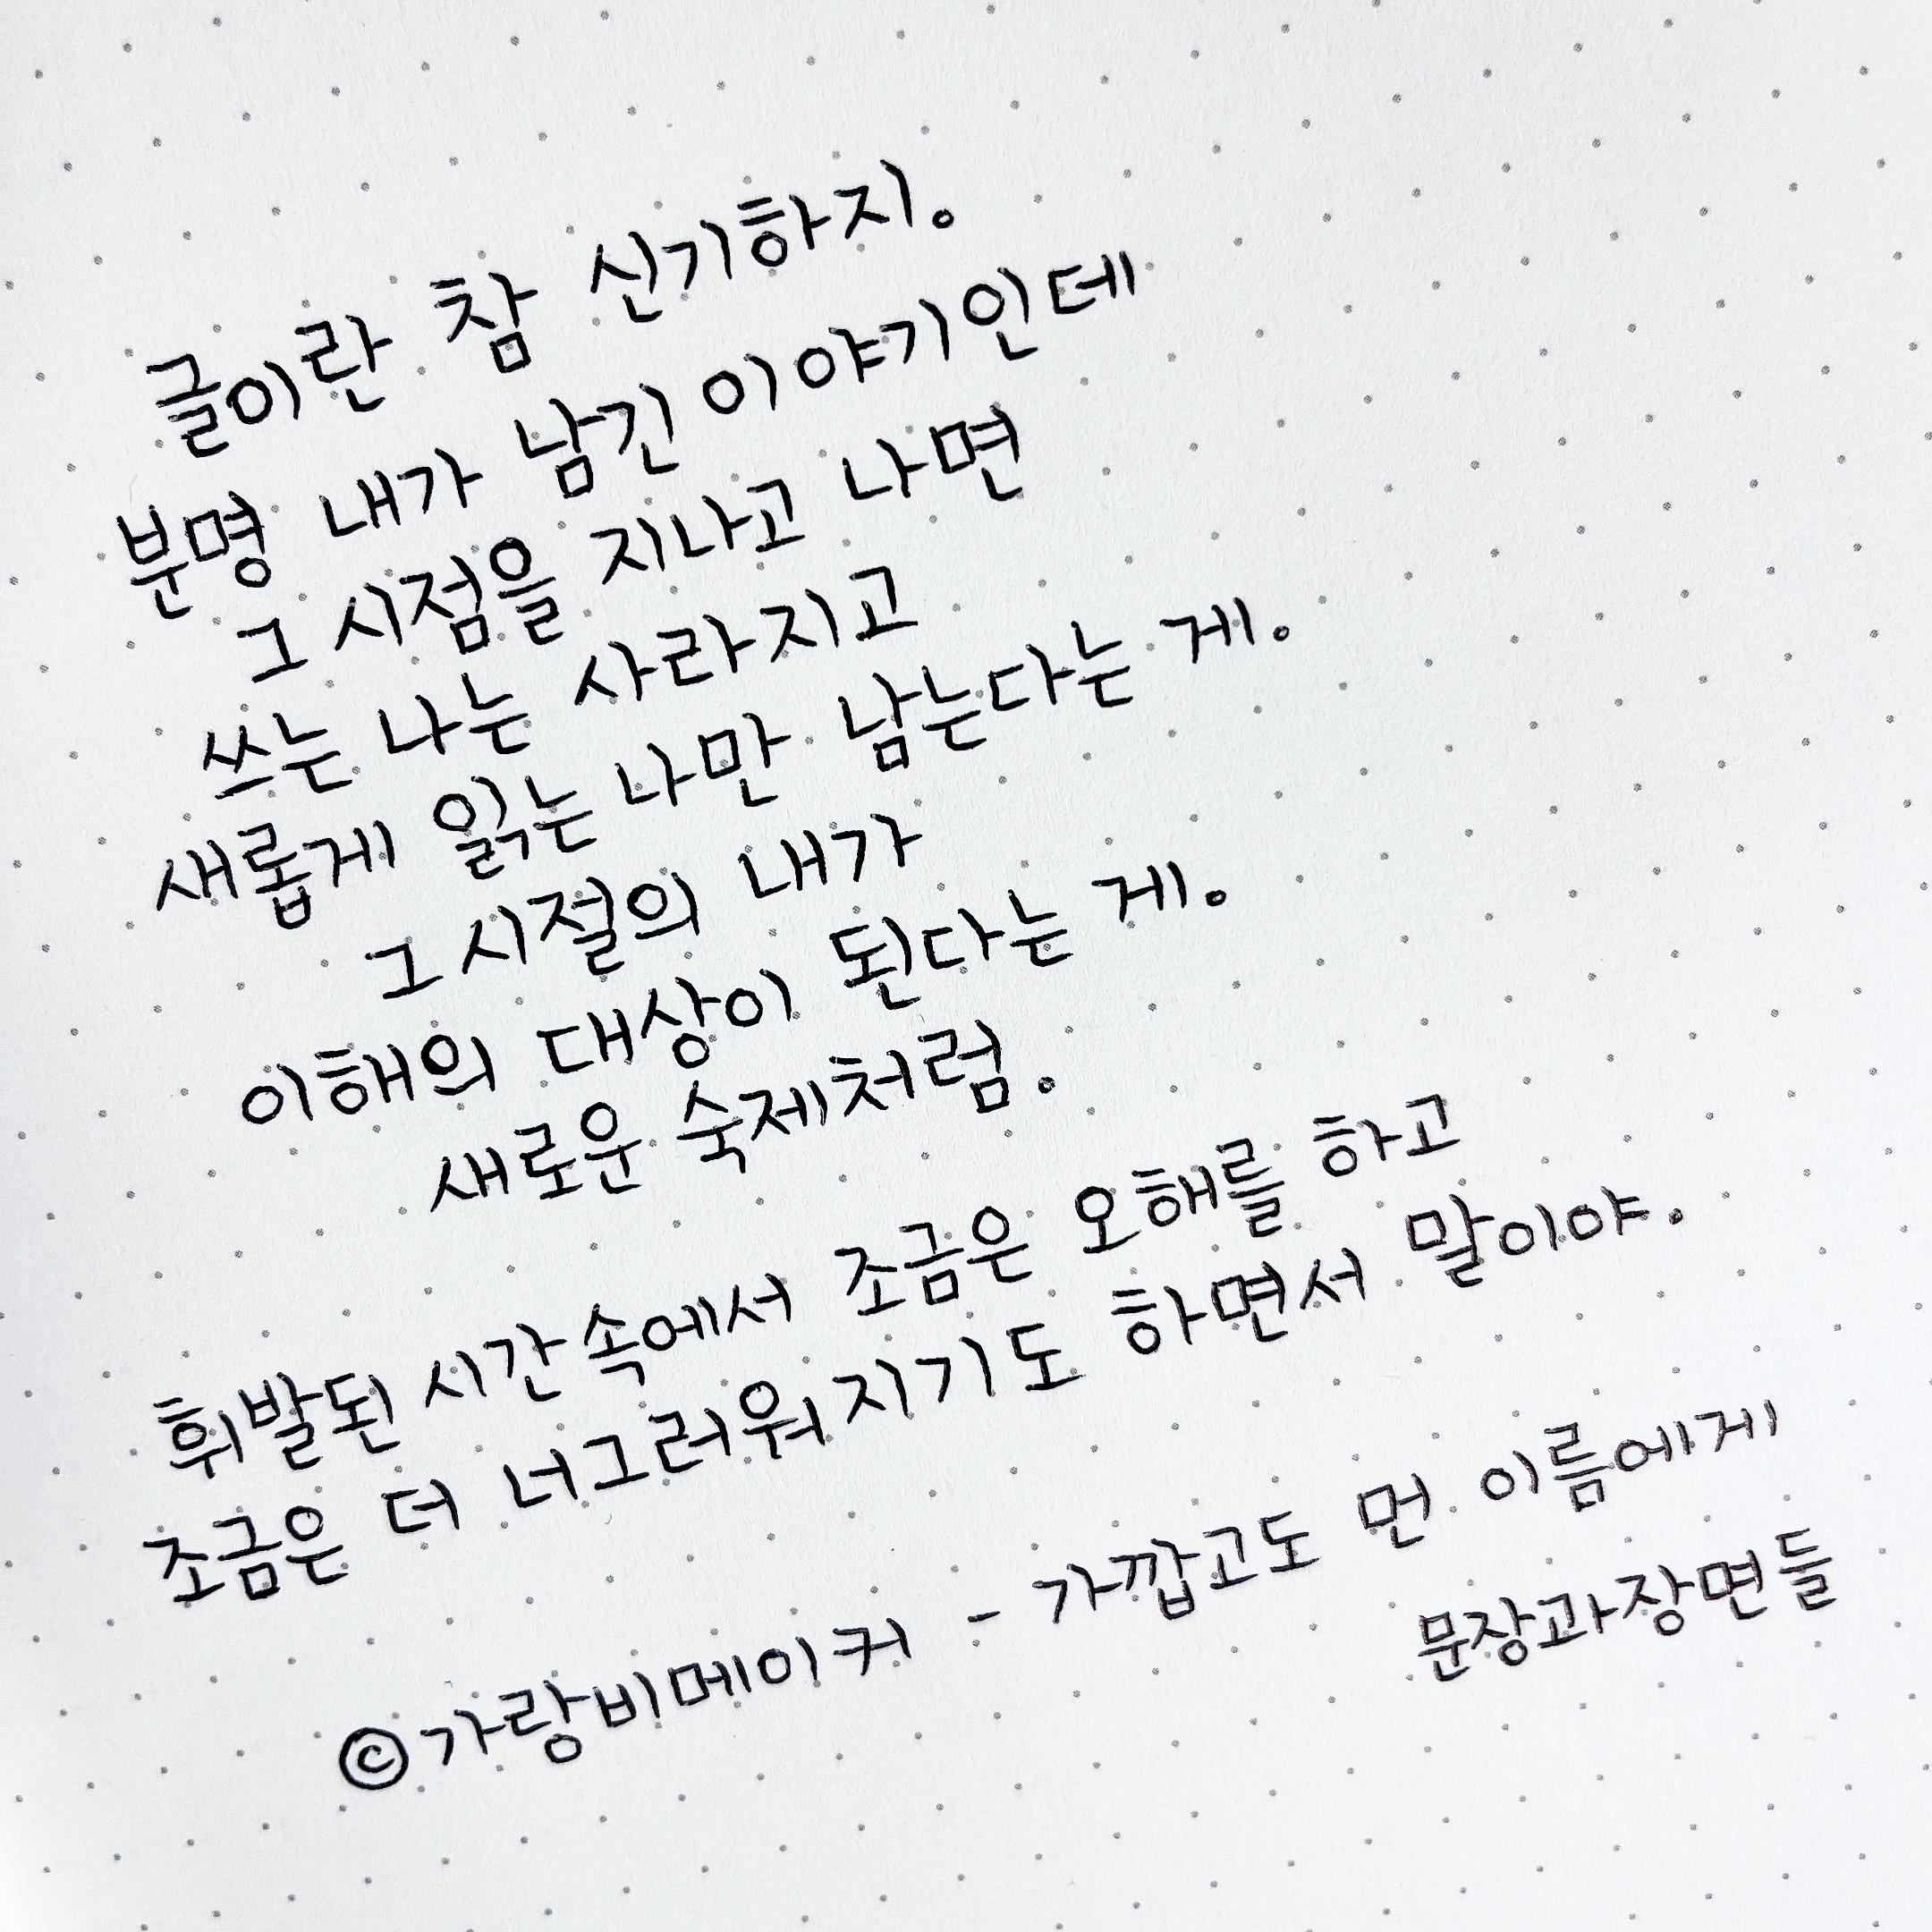 글이란 참 신기하지.
분명 내가 남긴 이야기인데
그 시점을 지나고 나면
쓰는 나는 사라지고
새롭게 읽는 나만 남는다는 게.
그 시절의 내가
이해의 대상이 된다는 게.
새로운 숙제처럼.
휘발된 시간 속에서 조금은 오해를 하고
조금은 더 너그러워지기도 하면서 말이야.
©가랑비메이커 - 가깝고도 먼 이름에게
문장과장면들